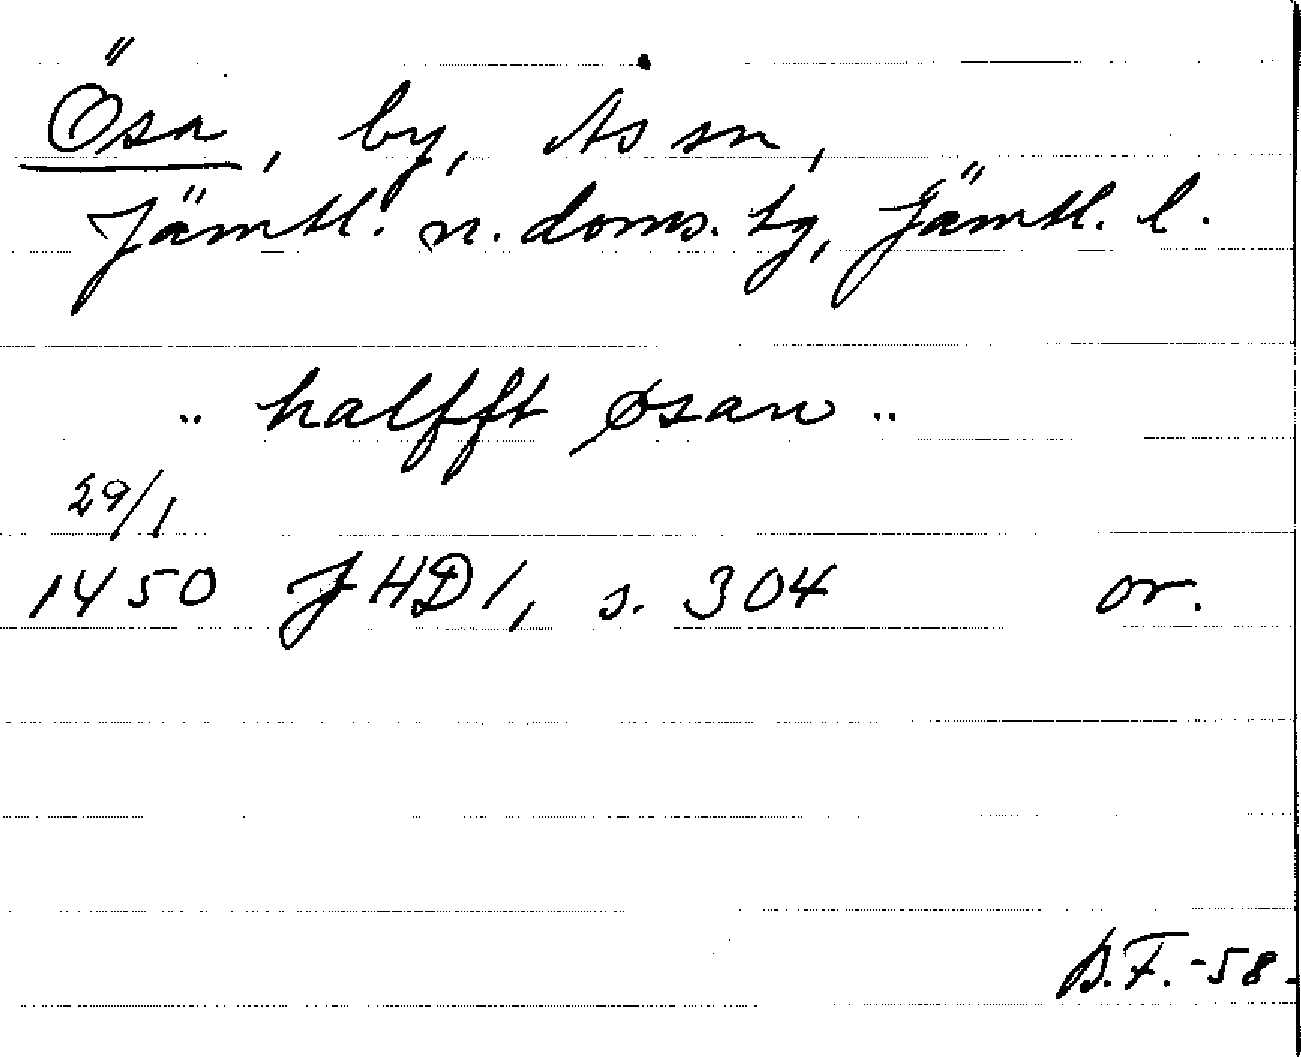 Ösa, by, Ås sn,
Jämtl. n. doms. tg, Jämtl. l.
.. halfft øsan ..
29/1
1450 JHD 1, s. 304 or.
B.F. -58.